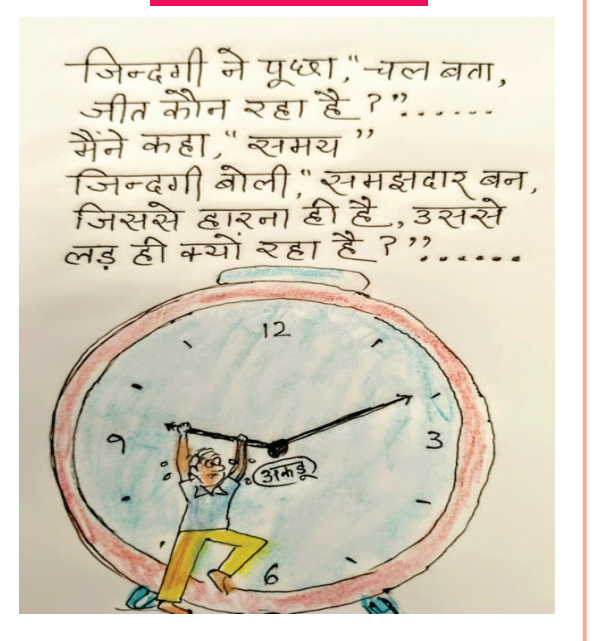 जिन्दगी ने पूछा," चल बता,
जीत कौन रहा है ?"......
मैंने कहा," समय"
जिन्दगी बोली," समझदार बन,
जिससे हारना ही है, उससे
लड़ ही क्यों रहा है ?"......
12
9
3
अकडू
6